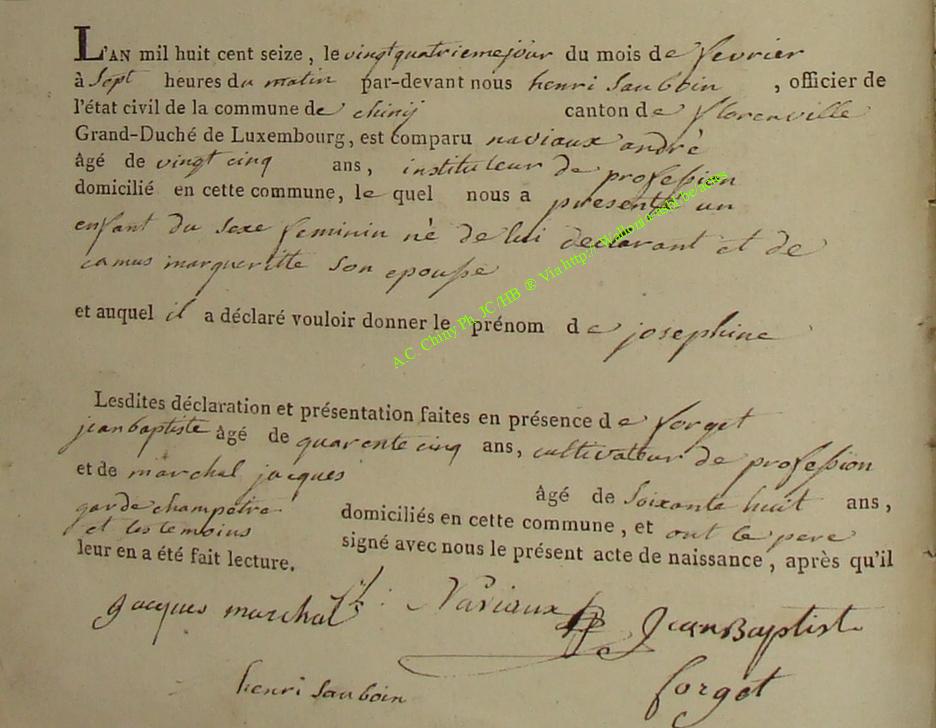 L'AN mil huit cent seize, le vingtquatriemejour du mois de fevrier
à Sept heures du matin par-devant nous henri Sauboin , officier de
l'état civil de la commune de chinij canton de florenville
Grand-Duché de Luxembourg, est comparu naviaux andrè
âgé de vingt cinq ans, instituteur de profession
domicilié en cette commune, le quel nous a presenté un
enfant du sexe feminin nè de lui declarant et de
camus margueritte son epouse
et auquel il a déclaré vouloir donner le prénom de josephine
Lesdites déclaration et présentation faites en présence de forget
jean baptiste âgé de quarente cinq ans, cultivateur de profession
et de marchal jacques
âgé de Soixante huit ans,
garde champetre domiciliés en cette commune, et ont le pere
et les temoins
signé avec nous le présent acte de naissance, après qu'il
leur en a été fait lecture.
jacques marchal Naviaux Jean Baptiste
forget
henri Sauboin
A.C. Chiny Ph. JC /HB ® Via http://Wallonia.asbl.be/actes